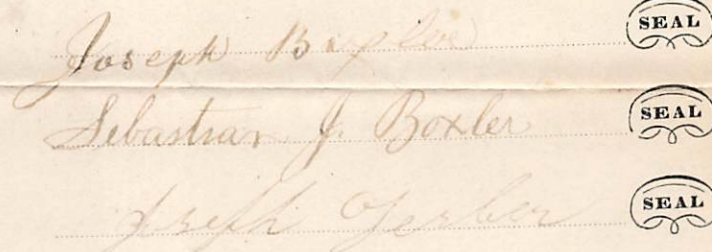 Joseph SEAL
Sebastian J. Boxler SEAL
Joseph Gerber SEAL